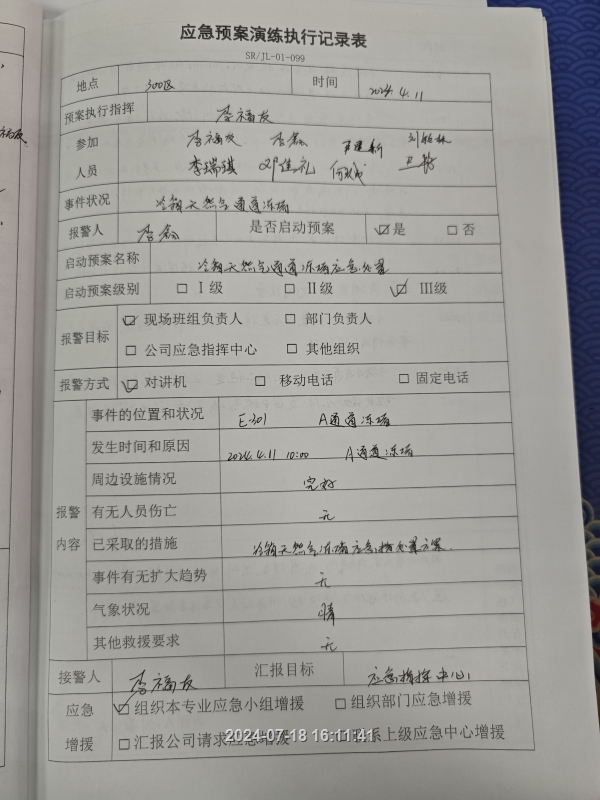 应急预案演练执行记录表
SR/JL-01-099
地点 300区 时间 2024.4.11
预案执行指挥 李福友
参加人员 李福友 李鑫
李瑞琪 邓连礼
事件状况 冷箱天然气通道冻堵
报警人 李鑫 是否启动预案 ☑是 □否
启动预案名称 冷箱天然气通道冻堵应急处置
启动预案级别 □ Ⅰ级 □ Ⅱ级 ☑ Ⅲ级
报警目标 ☑ 现场班组负责人 □ 部门负责人
□ 公司应急指挥中心 □ 其他组织
报警方式 ☑ 对讲机 □ 移动电话 □ 固定电话
报警内容
事件的位置和状况 E-301 A通道冻堵
发生时间和原因 2024.4.11 10:00 A通道冻堵
周边设施情况 完好
有无人员伤亡 无
已采取的措施 冷箱天然气冻堵应急处置方案.
事件有无扩大趋势 无
气象状况 晴
其他救援要求 无
接警人 李福友 汇报目标 应急指挥中心
应急增援 ☑ 组织本专业应急小组增援 □ 组织部门应急增援
□ 汇报公司请求应急增援 □ 联系上级应急中心增援
2024-07-18 16:11:41